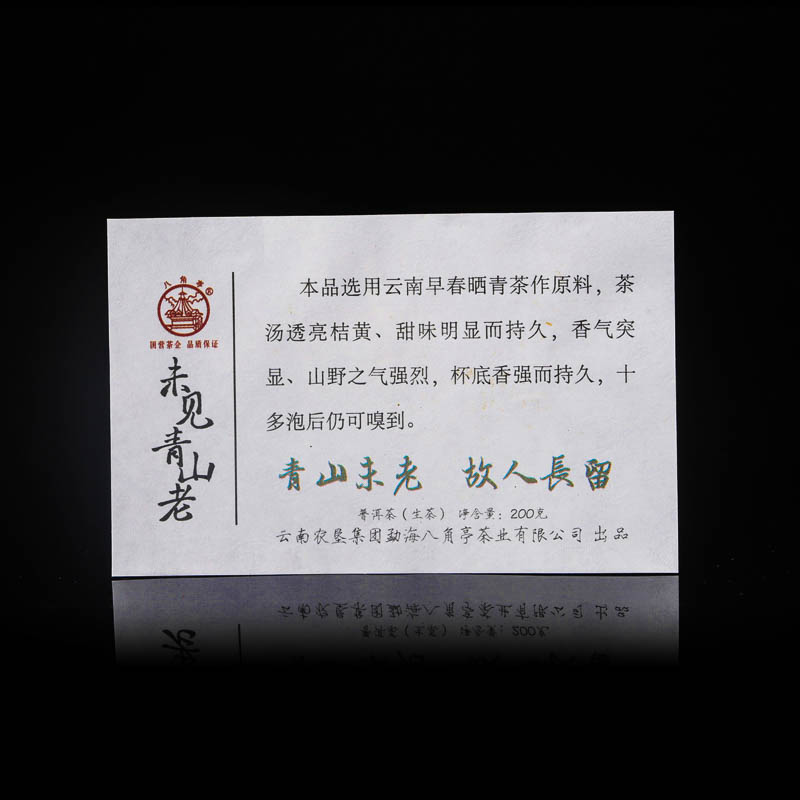 八角亭
国营茶企 品质保证
未见青山老
本品选用云南早春晒青茶作原料，茶
汤透亮桔黄、甜味明显而持久，香气突
显、山野之气强烈，杯底香强而持久，十
多泡后仍可嗅到。
青山未老 故人長留
普洱茶（生茶） 净含量：200克
云南农垦集团勐海八角亭茶业有限公司 出品